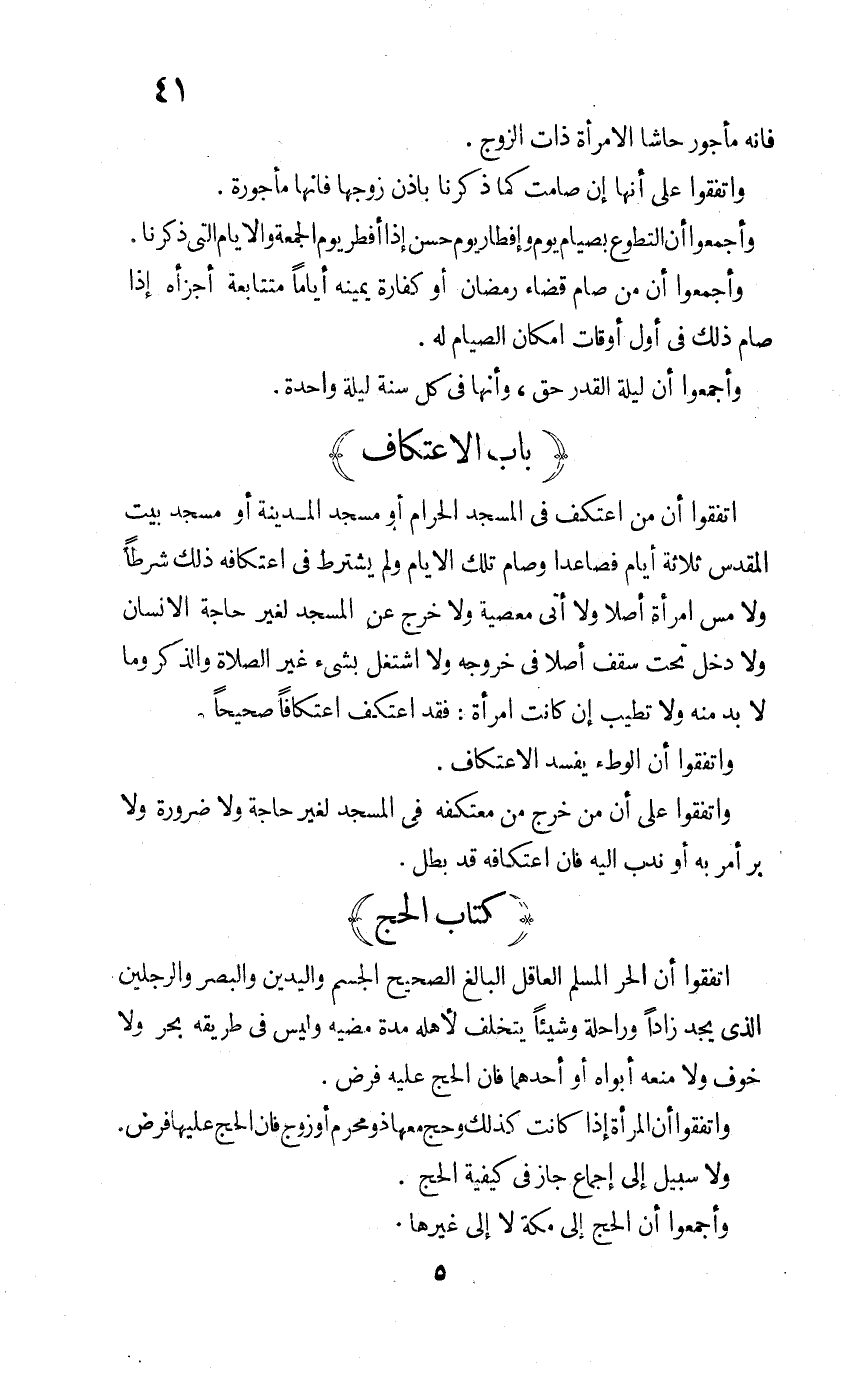 ٤١
فانه مأجور حاشا الامرأة ذات الزوج .
واتفقوا على أنها إن صامت كما ذكرنا باذن زوجها فانها مأجورة .
وأجمعوا أن التطوع بصيام يوم وإفطار يوم حسن إذا أفطر يوم الجمعة والايام التى ذكرنا .
وأجمعوا أن من صام قضاء رمضان أو كفارة يمينه أياماً متتابعة أجزأه إذا
صام ذلك فى أول أوقات امكان الصيام له .
وأجمعوا أن ليلة القدر حق ، وأنها فى كل سنة ليلة واحدة .
﴿ باب الاعتكاف ﴾
اتفقوا أن من اعتكف فى المسجد الحرام أو مسجد المـدينة أو مسجد بيت
المقدس ثلاثة أيام فصاعدا وصام تلك الايام ولم يشترط فى اعتكافه ذلك شرطاً
ولا مس امرأة أصلا ولا أتى معصية ولا خرج عن المسجد لغير حاجة الانسان
ولا دخل تحت سقف أصلا فى خروجه ولا اشتغل بشىء غير الصلاة والذكر وما
لا بد منه ولا تطيب إن كانت امرأة : فقد اعتكف اعتكافاً صحيحاً .
واتفقوا أن الوطء يفسد الاعتكاف .
واتفقوا على أن من خرج من معتكفه فى المسجد لغير حاجة ولا ضرورة ولا
بر أمر به أو ندب اليه فان اعتكافه قد بطل .
﴿ كتاب الحج ﴾
اتفقوا أن الحر المسلم العاقل البالغ الصحيح الجسم واليدين والبصر والرجلين
الذى يجد زاداً وراحلة وشيئاً يتخلف لأهله مدة مضيه وليس فى طريقه بحر ولا
خوف ولا منعه أبواه أو أحدهما فان الحج عليه فرض .
واتفقوا أن المرأة إذا كانت كذلك وحج معها ذو محرم أو زوج فان الحج عليها فرض .
ولا سبيل إلى إجماع جاز فى كيفية الحج .
وأجمعوا أن الحج إلى مكة لا إلى غيرها .
٥